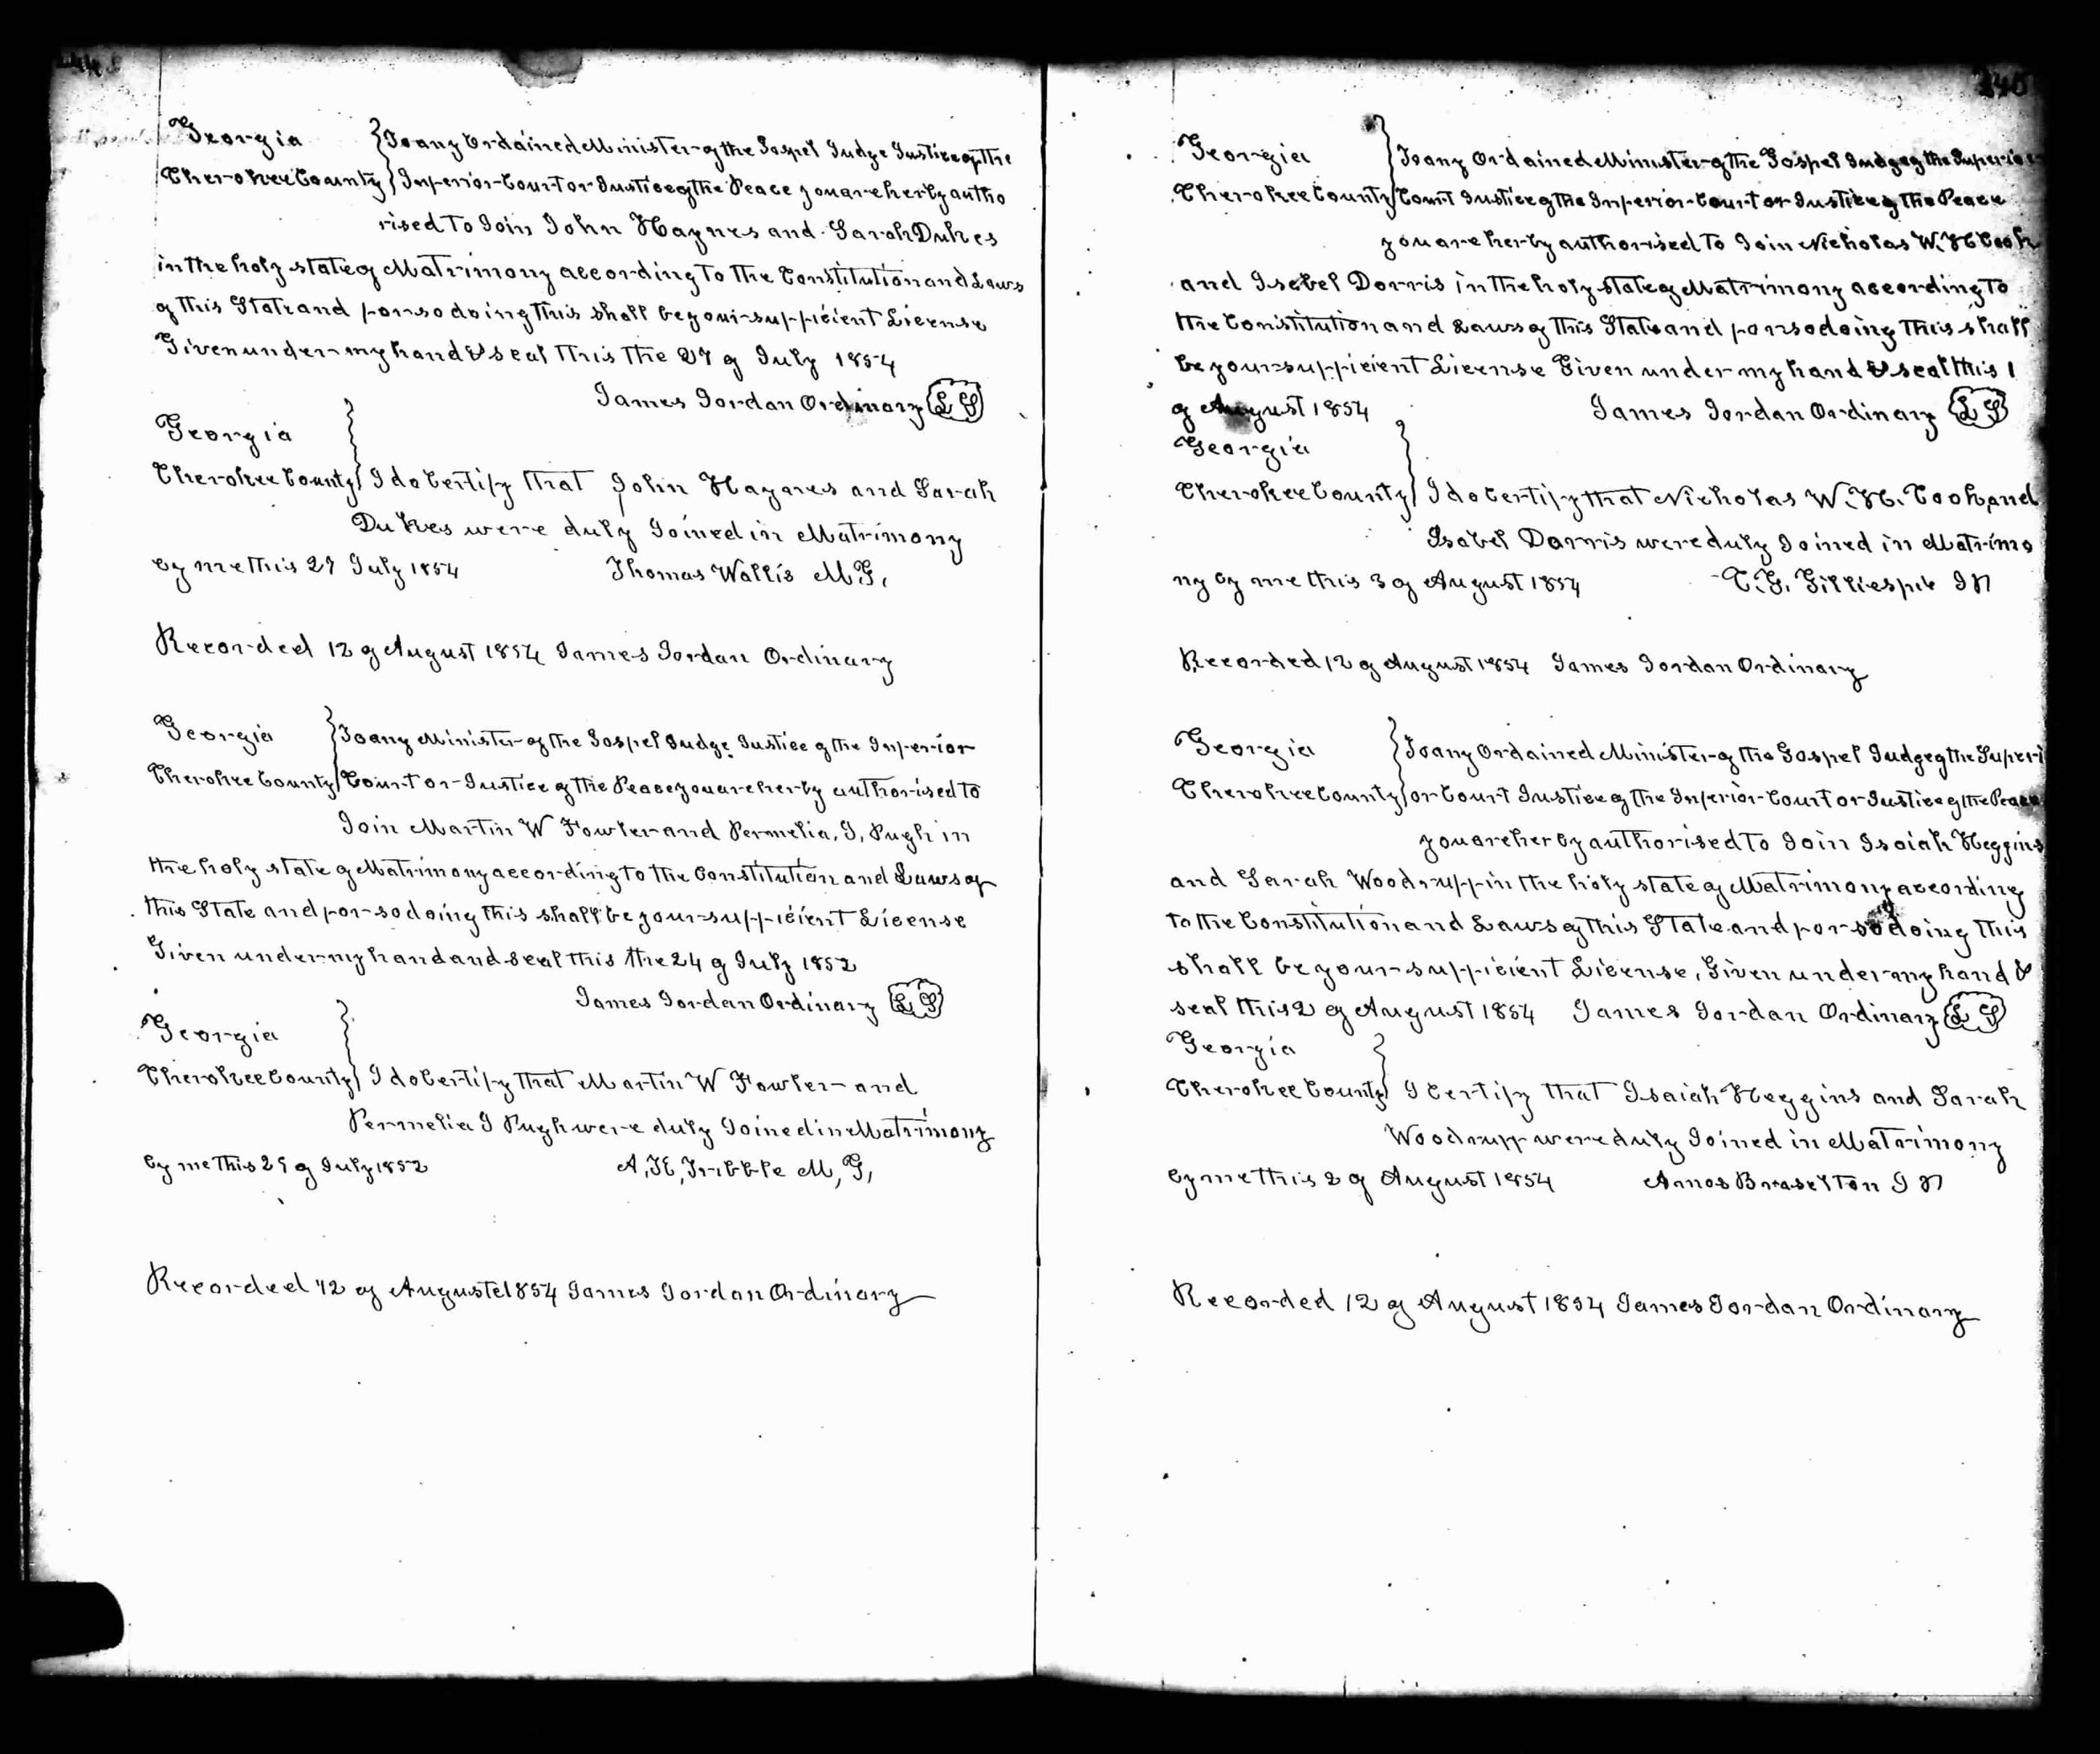 Georgia } To any Ordained Minister of the Gospel Judge Justice of the
Cherokee County } Inferior Court or Justice of the Peace you are herby autho
rised To Join John Haynes and Sarah Dukes
in the holy state of Matrimony according To the Constitution and Laws
of this State and for so doing this shall be your sufficient License
Given under my hand & seal this the 27 of July 1854
James Jordan Ordinary LS
Georgia }
Cherokee County } I do Certify that John Haynes and Sarah
Dukes were duly Joined in Matrimony
by me this 27 July 1854 Thomas Wallis M G,
Recorded 12 of August 1854 James Jordan Ordinary
Georgia } To any Minister of the Gospel Judge Justice of the Inferior
Cherokee County } Court or Justice of the Peace you are herby authorised to
Join Martin W Fowler and Permelia, J, Pugh in
the holy state of Matrimony according to the Constitution and Laws of
this State and for so doing this shall be your sufficient License
Given under my hand and seal this the 24 of July 1852
James Jordan Ordinary LS
Georgia }
Cherokee County } I do Certify that Martin W Fowler and
Permelia J Pugh were duly Joined in Matrimony
by me this 25 of July 1852 A, K, Tribble M, G,
Recorded 12 of August 1854 James Jordan Ordinary
240
Georgia } To any Ordained Minister of the Gospel Judge of the Superior
Cherokee County } Court Justice of the Inferior Court or Justice of the Peace
you are herby authorised To Join Nicholas W. H Cook
and Isabel Dorris in the holy state of Matrimony according To
the Constitution and Laws of this State and for so doing this shall
be your sufficient License Given under my hand & seal this 1
of August 1854 James Jordan Ordinary LS
Georgia }
Cherokee County } I do Certify that Nicholas W. H. Cook and
Isabel Dorris were duly Joined in Matrimo
ny by me this 3 of August 1854 C. G. Gilliespie J P
Recorded 12 of August 1854 James Jordan Ordinary
Georgia } To any Ordained Minister of the Gospel Judge of the Superi
Cherokee County } or Court Justice of the Inferior Court or Justice of the Peace
you are herby authorised To Join Isaiah Heggins
and Sarah Woodruff in the holy state of Matrimony according
to the Constitution and Laws of this State and for so doing this
shall be your sufficient License, Given under my hand &
seal this 2 of August 1854 James Jordan Ordinary LS
Georgia }
Cherokee County } I Certify that Isaiah Heggins and Sarah
Woodruff were duly Joined in Matrimony
by me this 2 of August 1854 Amos Braselton J P
Recorded 12 of August 1854 James Jordan Ordinary